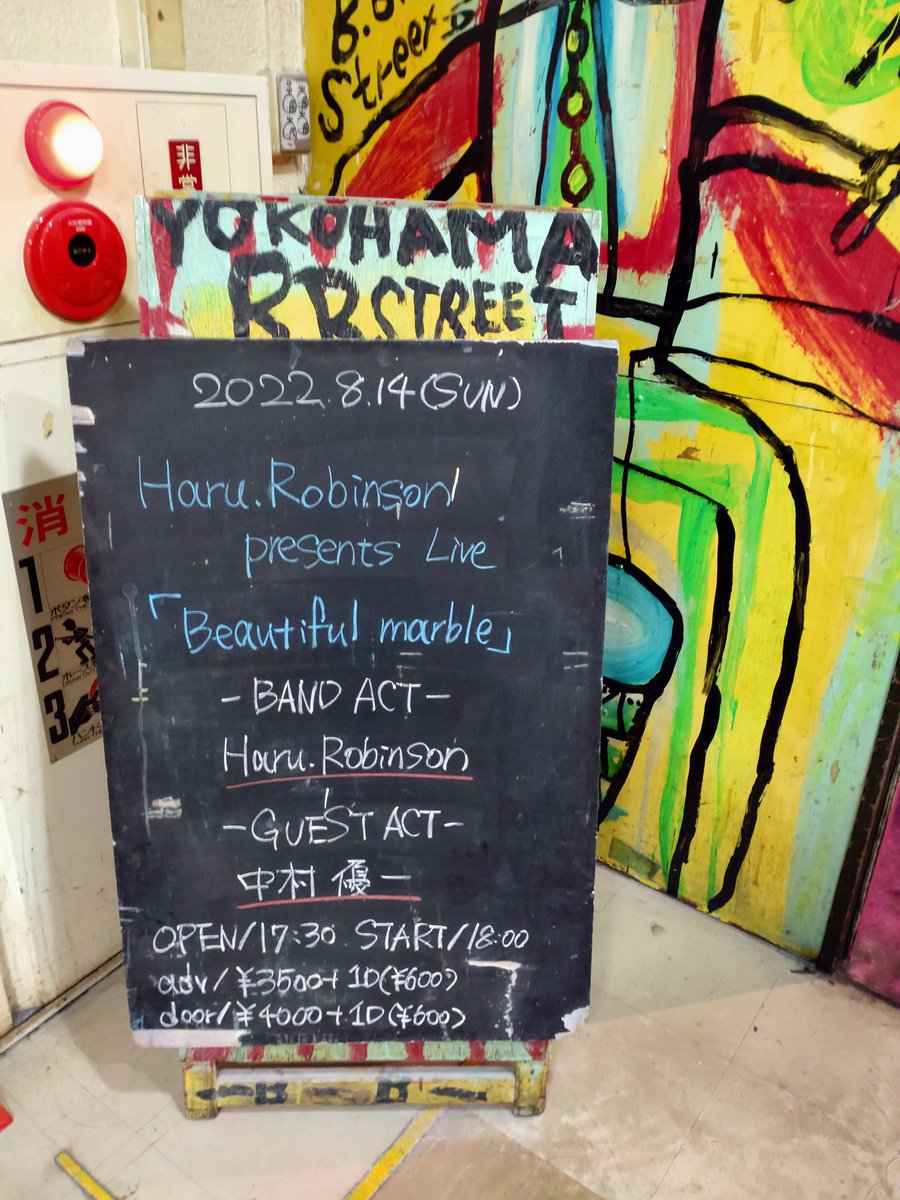 B.B.
Street
非常
YOKOHAMA
BB STREET
2022.8.14(SUN)
Haru.Robinson
presents Live
「Beautiful marble」
-BAND ACT-
Haru.Robinson
-GUEST ACT-
中村 優一
OPEN/17:30 START/18:00
adv/¥3500+1D(¥600)
door/¥4000+1D(¥600)
消
1
2
3